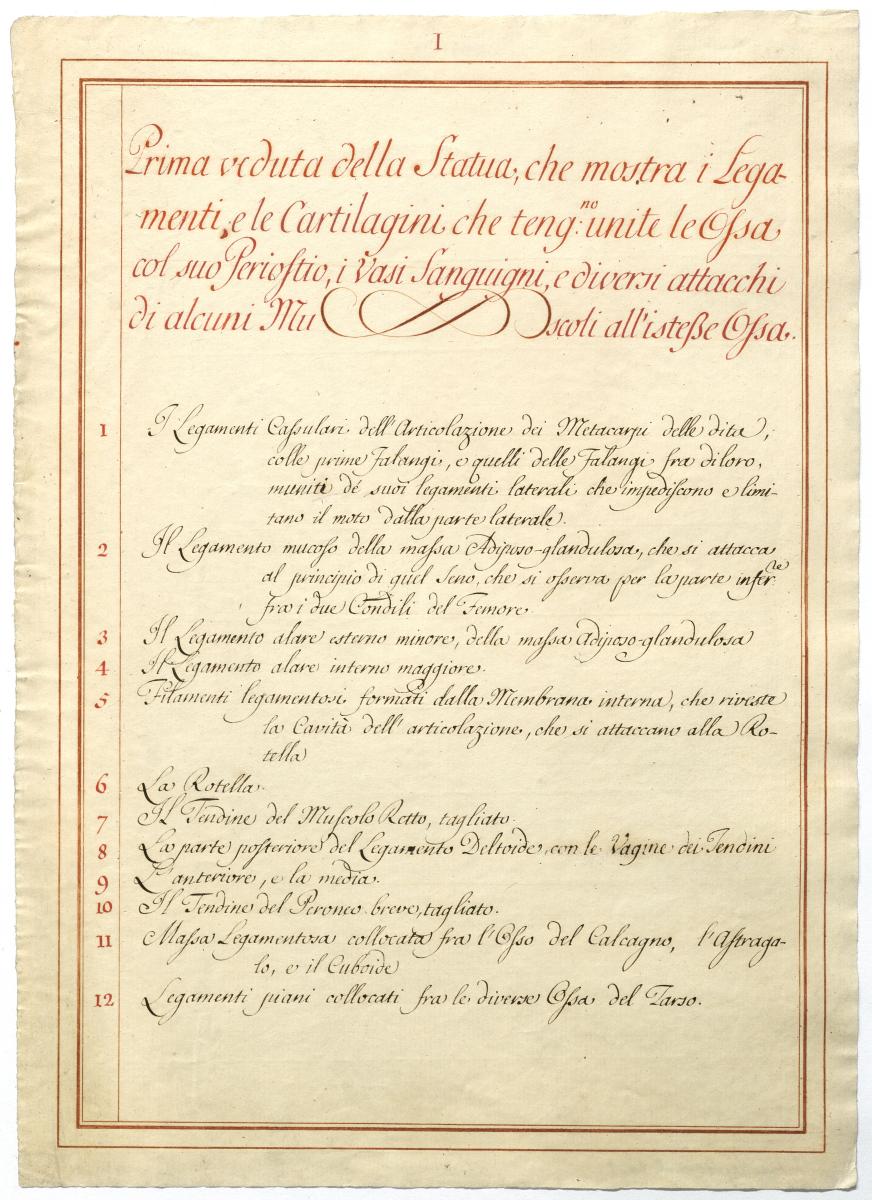 I
Prima veduta della Statua, che mostra i Lega-
menti, e le Cartilagini, che teng:no unite le Ossa
col suo Periostio, i Vasi Sanguigni, e diversi attacchi
di alcuni Muscoli all'istesse Ossa.
1 I Legamenti Cassulari dell'Articolazione dei Metacarpi delle dita,
colle prime Falangi, e quelli delle Falangi fra di loro,
muniti de' suoi legamenti laterali che impediscono e limi-
tano il moto dalla parte laterale.
2 Il Legamento mucoso della massa Adiposo-glandulosa, che si attacca
al principio di quel Seno, che si osserva per la parte infer:re
fra i due Condili del Femore.
3 Il Legamento alare esterno minore, della massa Adiposo-glandulosa
4 Il Legamento alare interno maggiore.
5 Filamenti legamentosi formati dalla Membrana interna, che riveste
la Cavità dell'articolazione, che si attaccano alla Ro-
tella
6 La Rotella.
7 Il Tendine del Muscolo Retto, tagliato.
8 La parte posteriore del Legamento Deltoide, con le Vagine dei Tendini
9 L'anteriore, e la media.
10 Il Tendine del Peroneo breve, tagliato.
11 Massa Legamentosa collocata fra l'Osso del Calcagno, l'Astraga-
lo, e il Cuboide
12 Legamenti piani collocati fra le diverse Ossa del Tarso.